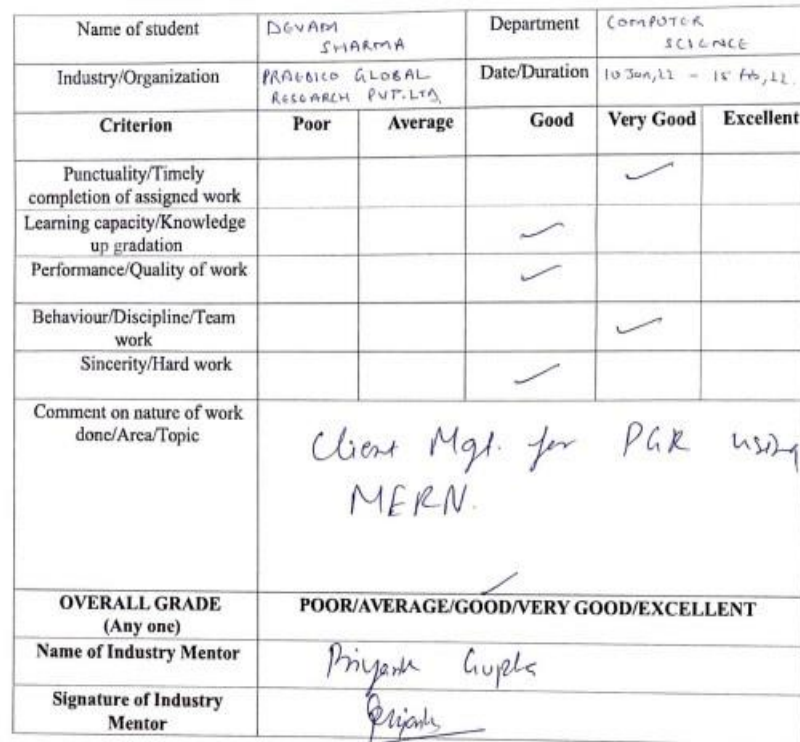 Name of student DEVAM SHARMA Department COMPUTER SCIENCE
Industry/Organization PRAEDICO GLOBAL RESEARCH PVT.LTD. Date/Duration 10 Jan,22 - 15 Feb,22.
Criterion Poor Average Good Very Good Excellent
Punctuality/Timely ✓
completion of assigned work
Learning capacity/Knowledge ✓
up gradation
Performance/Quality of work ✓
Behaviour/Discipline/Team ✓
work
Sincerity/Hard work ✓
Comment on nature of work
done/Area/Topic
Client Mgt. for PGR using
MERN.
✓
OVERALL GRADE POOR/AVERAGE/GOOD/VERY GOOD/EXCELLENT
(Any one)
Name of Industry Mentor Priyank Gupta
Signature of Industry Priyank
Mentor